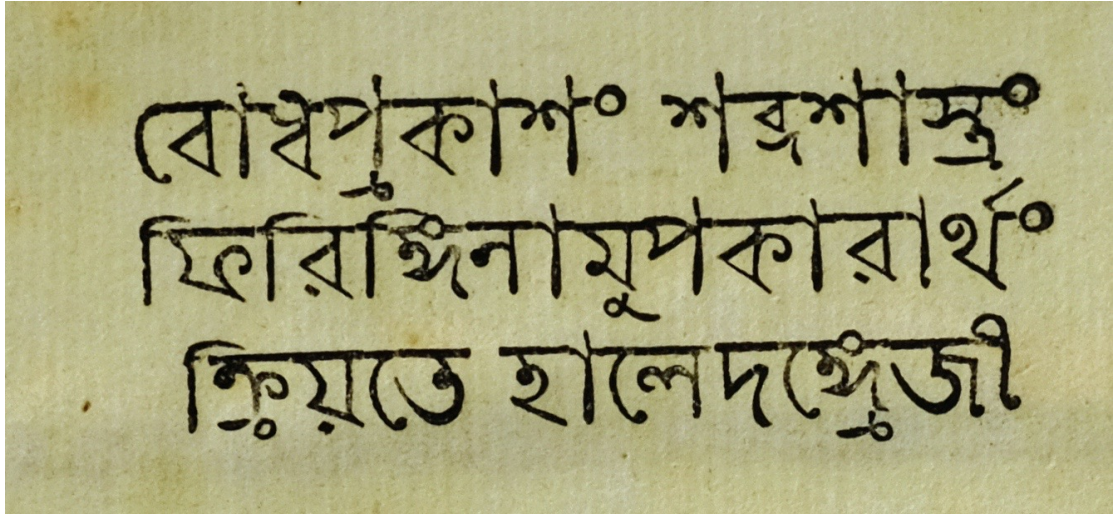 বোধপ্রকাশং শব্দশাস্ত্রং
ফিরিঙ্গিনামুপকারার্থং
ক্রিয়তে হালেদঙ্গ্রেজী